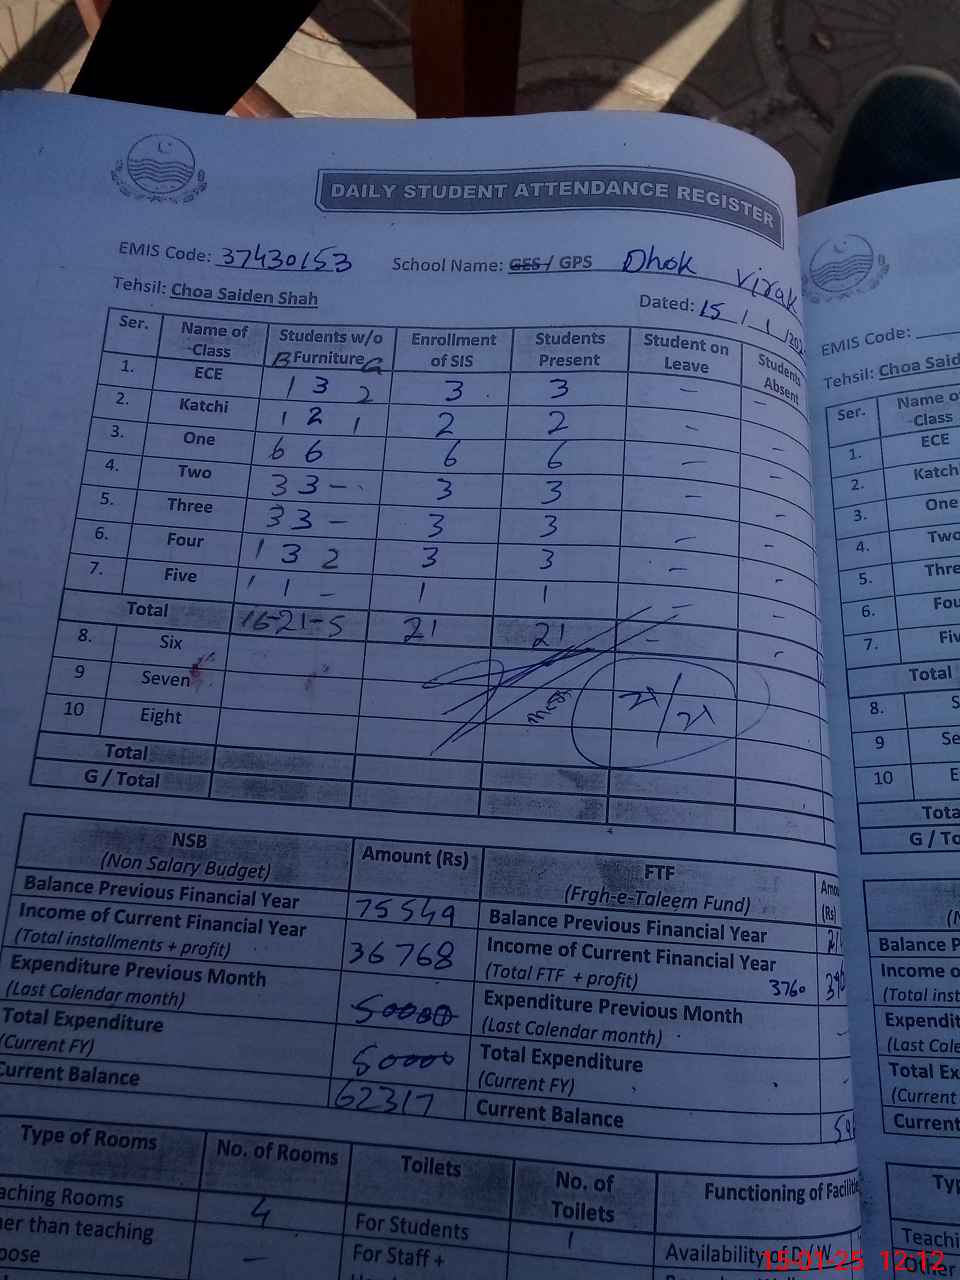 DAILY STUDENT ATTENDANCE REGISTER
EMIS Code: 37430153 School Name: GES / GPS Dhok Virak
Tehsil: Choa Saiden Shah Dated: 15/1/202
Ser. Name of Class Students w/o Furniture B G Enrollment of SIS Students Present Student on Leave Students Absent
1. ECE 1 3 2 3 3 – –
2. Katchi 1 2 1 2 2 – –
3. One 6 6 6 6 – –
4. Two 3 3 – 3 3 – –
5. Three 3 3 – 3 3 – –
6. Four 1 3 2 3 3 – –
7. Five 1 1 – 1 1 – –
Total 16-21-5 21 21 – –
8. Six
9 Seven
10 Eight
21/21
Total
G / Total
NSB (Non Salary Budget) Amount (Rs) FTF (Frgh-e-Taleem Fund) (Rs)
Balance Previous Financial Year 75549 Balance Previous Financial Year
Income of Current Financial Year (Total installments + profit) 36768 Income of Current Financial Year (Total FTF + profit) 3760
Expenditure Previous Month (Last Calendar month) 50000 Expenditure Previous Month (Last Calendar month) –
Total Expenditure (Current FY) 50000 Total Expenditure (Current FY) –
Current Balance 62317 Current Balance
Type of Rooms No. of Rooms Toilets No. of Toilets Functioning of Facilitie
aching Rooms 4 For Students 1 Availability of D/W
her than teaching
pose – For Staff +
EMIS Code:
Tehsil: Choa Said
Ser. Name o Class
1. ECE
2. Katch
3. One
4. Two
5. Thre
6. Fou
7. Fiv
Total
8. S
9 Se
10 E
Tota
G / To
Balance P
Income o
(Total inst
Expendit
(Last Cale
Total Ex
(Current
Current
Ty
Teachi
Other
15-01-25 12:12